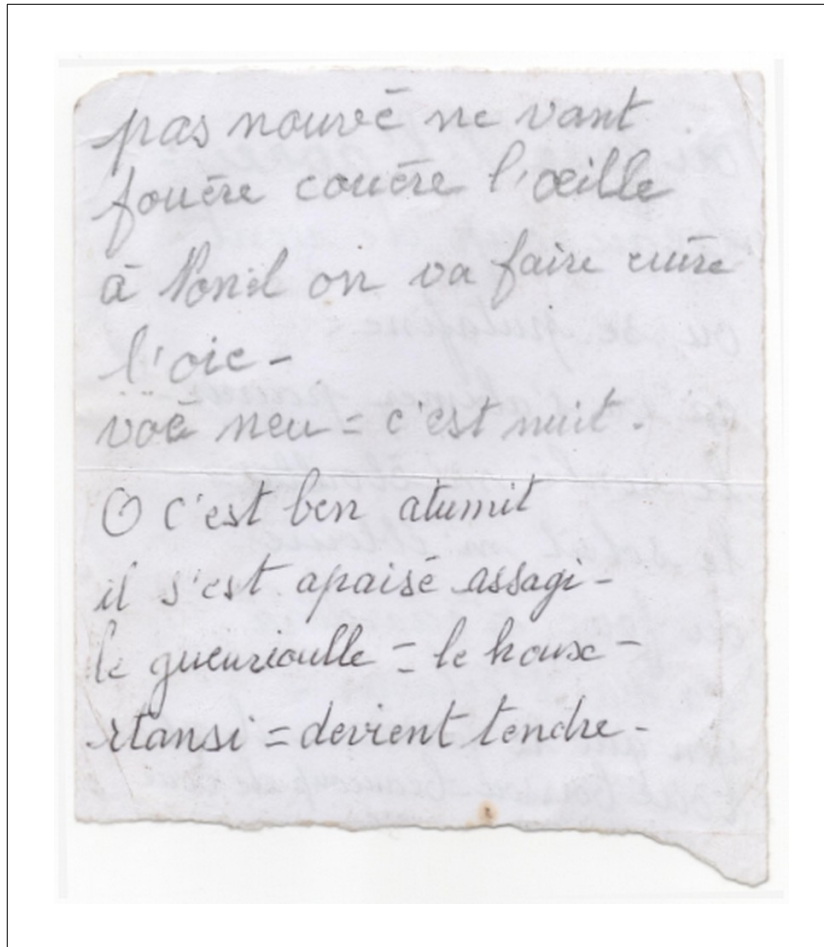 pas nouvé ne vant
fouére couére l'oeille
à Noël on va faire cuire
l'oie -
voé neu = c'est nuit.
O c'est ben atumit
il s'est apaisé assagi -
le gueurioulle = le houx -
rtansi = devient tendre -